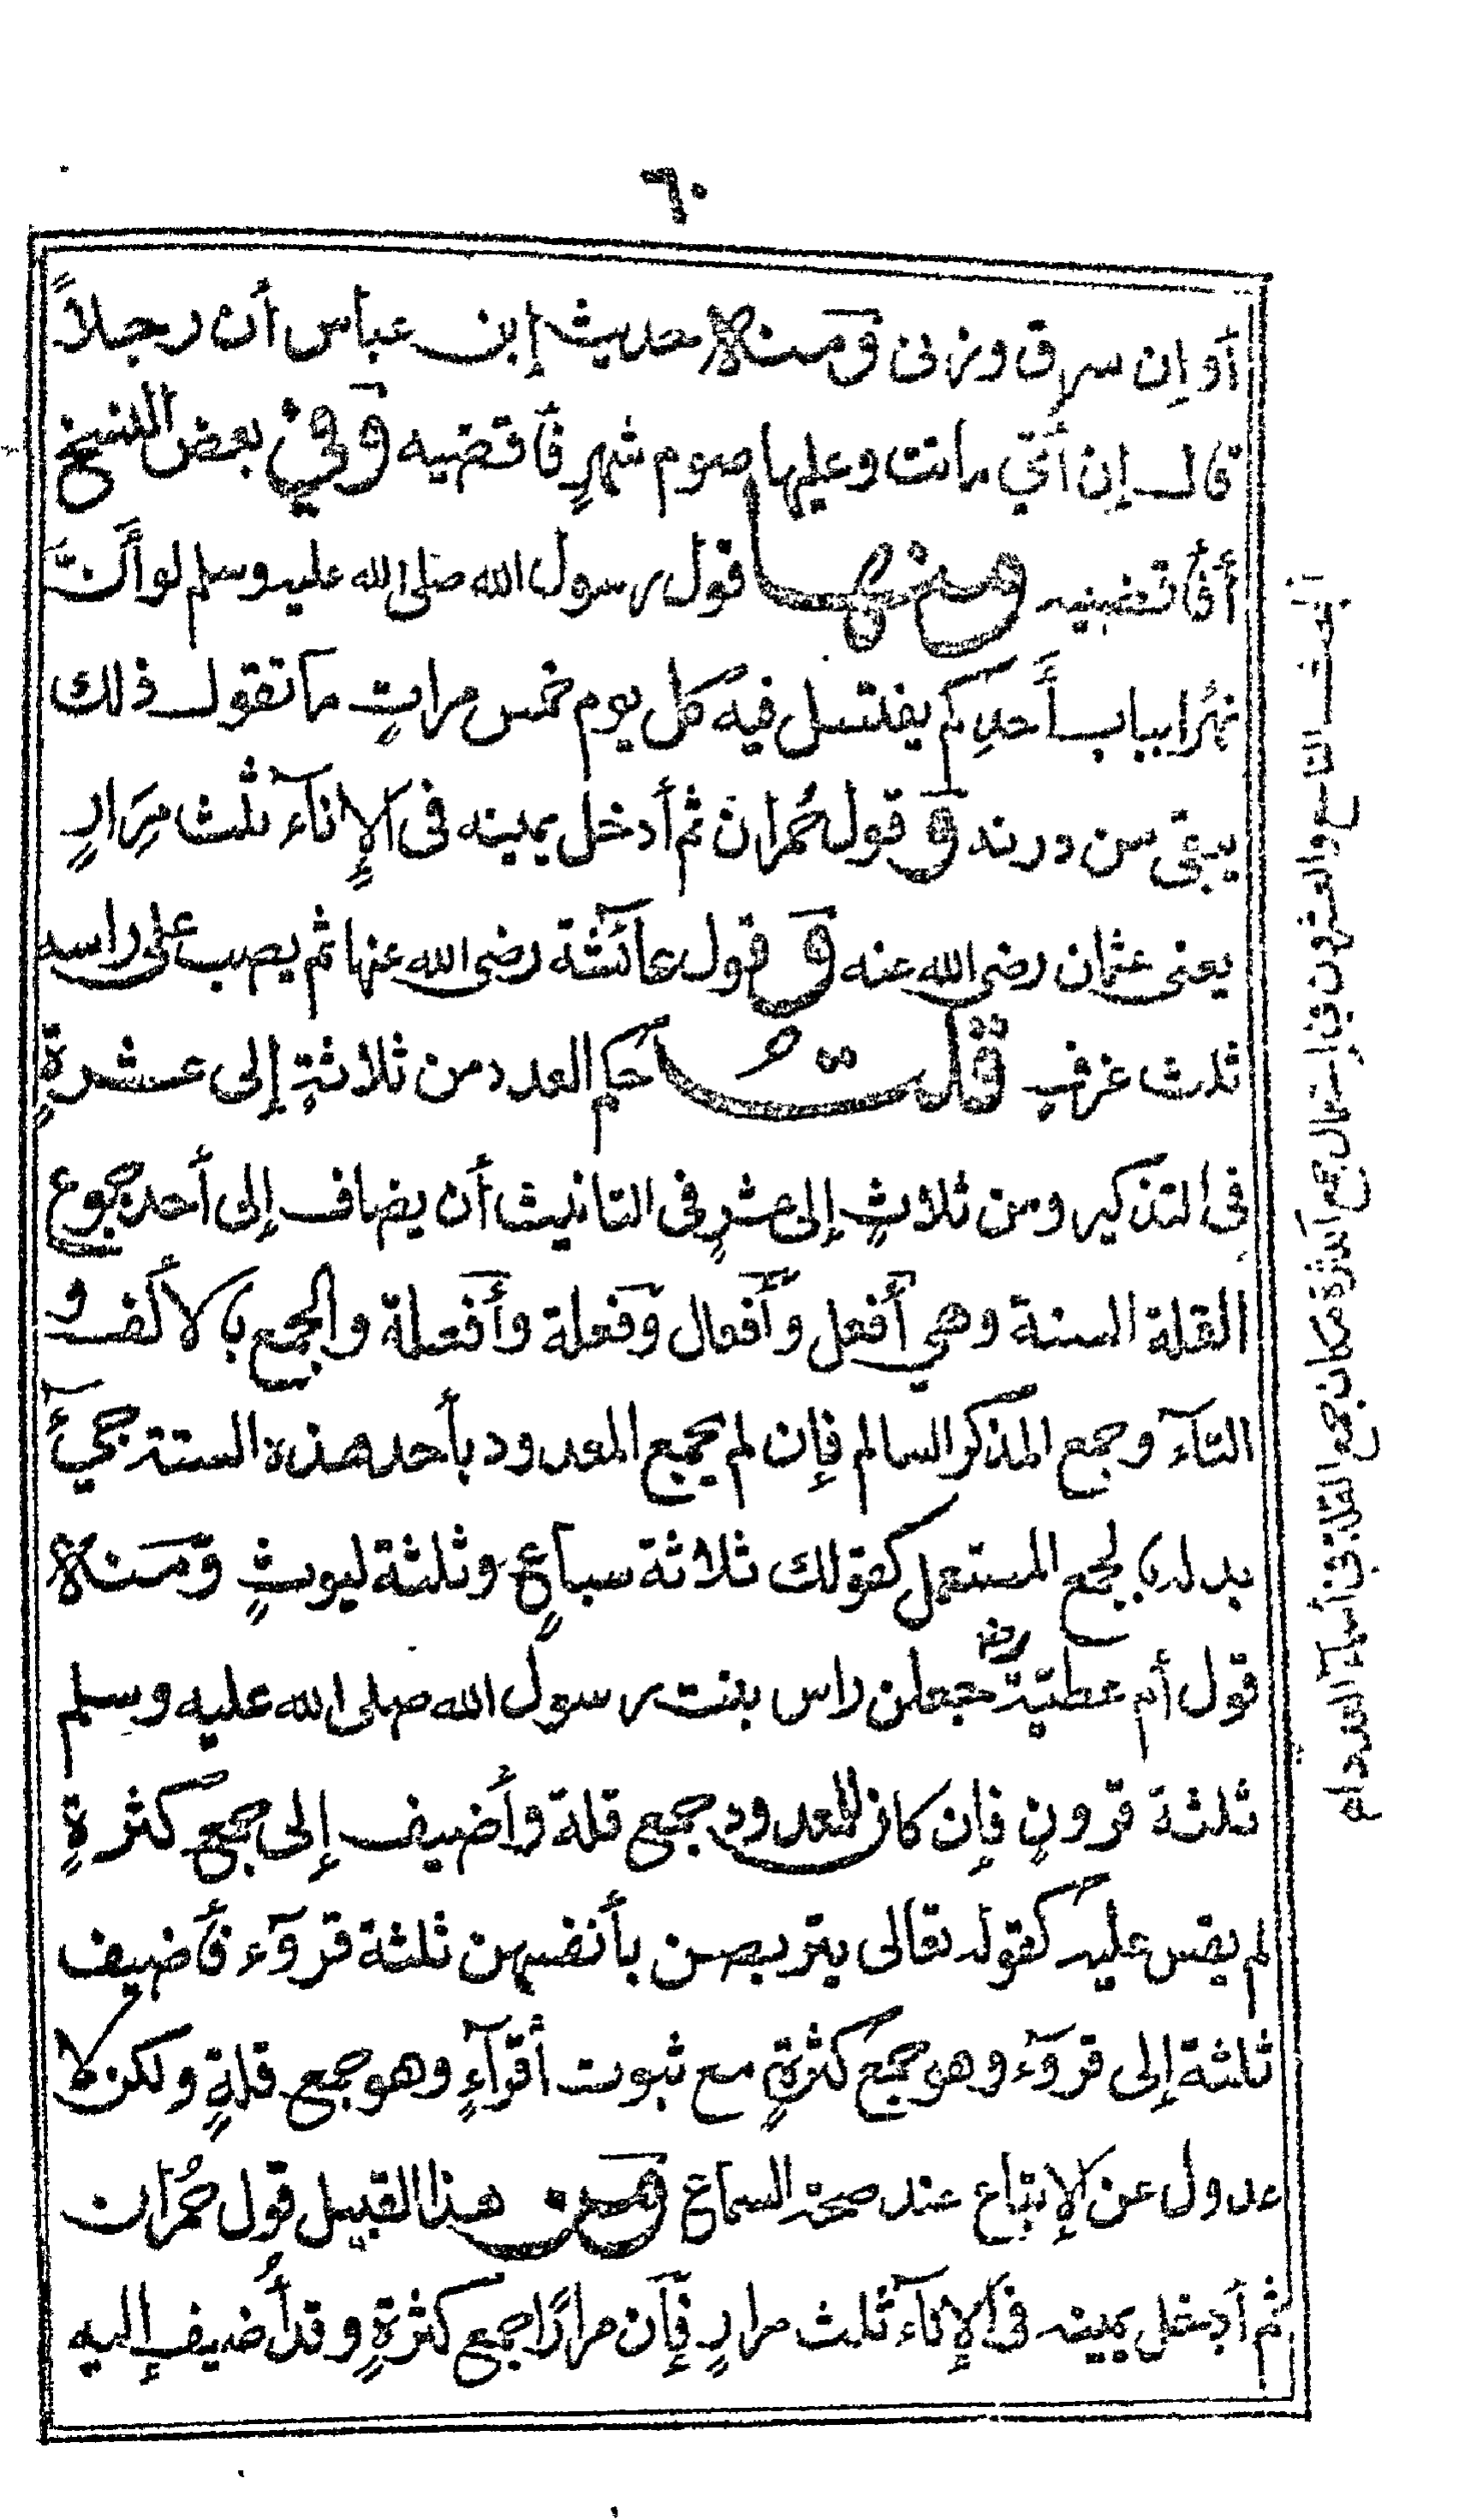 ٦٠
أو إن سرق وزنى ومنها حديث إبن عباس أن رجلاً
قال إن أمي ماتت وعليها صوم شهرٍ فأقضيه وفي بعض النسخ
أفأقضيه ومنها قول رسول الله صلى الله عليه وسلم لو أنّ
نهرًا بباب أحدكم يغتسل فيه كل يوم خمس مراتٍ ما تقول ذلك
يبقى من درنه و قول حُمران ثم أدخل يمينه فى الإناء ثلث مِرَارٍ
يعنى عثمان رضى الله عنه و قول عائشة رضى الله عنها ثم يصب على راسه
ثلث غرفٍ قلتُ حكم العدد من ثلاثةٍ إلى عشرةٍ
فى التذكير ومن ثلاثٍ إلى عشرٍ فى التانيث أن يضاف إلى أحد جموع
القلة الستة وهي أفعل وأفعال وفعلة وأفعلة والجمع بالألف و
التاء وجمع المذكر السالم فإن لم يجمع المعدود بأحد هذه الستة جيئَ
بدله بالجمع المستعمل كقولك ثلاثة سباعٍ وثلثة ليوثٍ ومنه
قول أم عطيّة رضـ جعلن راس بنت رسول الله صلى الله عليه وسلم
ثلثة قرونٍ فإن كان للمعدود جمع قلة وأضيف إلى جمع كثرةٍ
لم يقس عليه كقوله تعالى يتربصن بأنفسهن ثلثة قروء فأضيف
ثلثة إلى قروء وهو جمع كثرةٍ مع ثبوت أقراءٍ وهو جمع قلةٍ ولكن لا
عدول عن الإتباع عند صحة السماع ومن هذا القبيل قول حُمران
ثم أدخل يمينه فى الإناء ثلث مرارٍ فإن مرارًا جمع كثرةٍ وقد أُضيف إليه
البحث التاسع والعشرون فى إستعمال جمع الكثرة مكان جمع القلة فى أسماء العدد